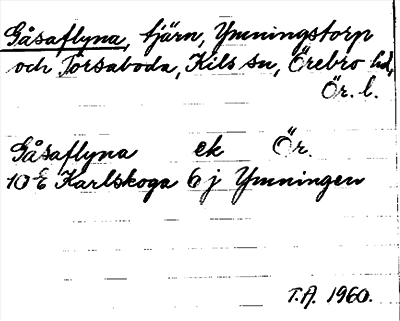 Gåsaflyna, tjärn, Ymningstorp
och Torsaboda, Kils sn, Örebro hd,
Ör. l.
Gåsaflyna ek Ör.
10 E Karlskoga 6 j Ymningen
T.A. 1960.